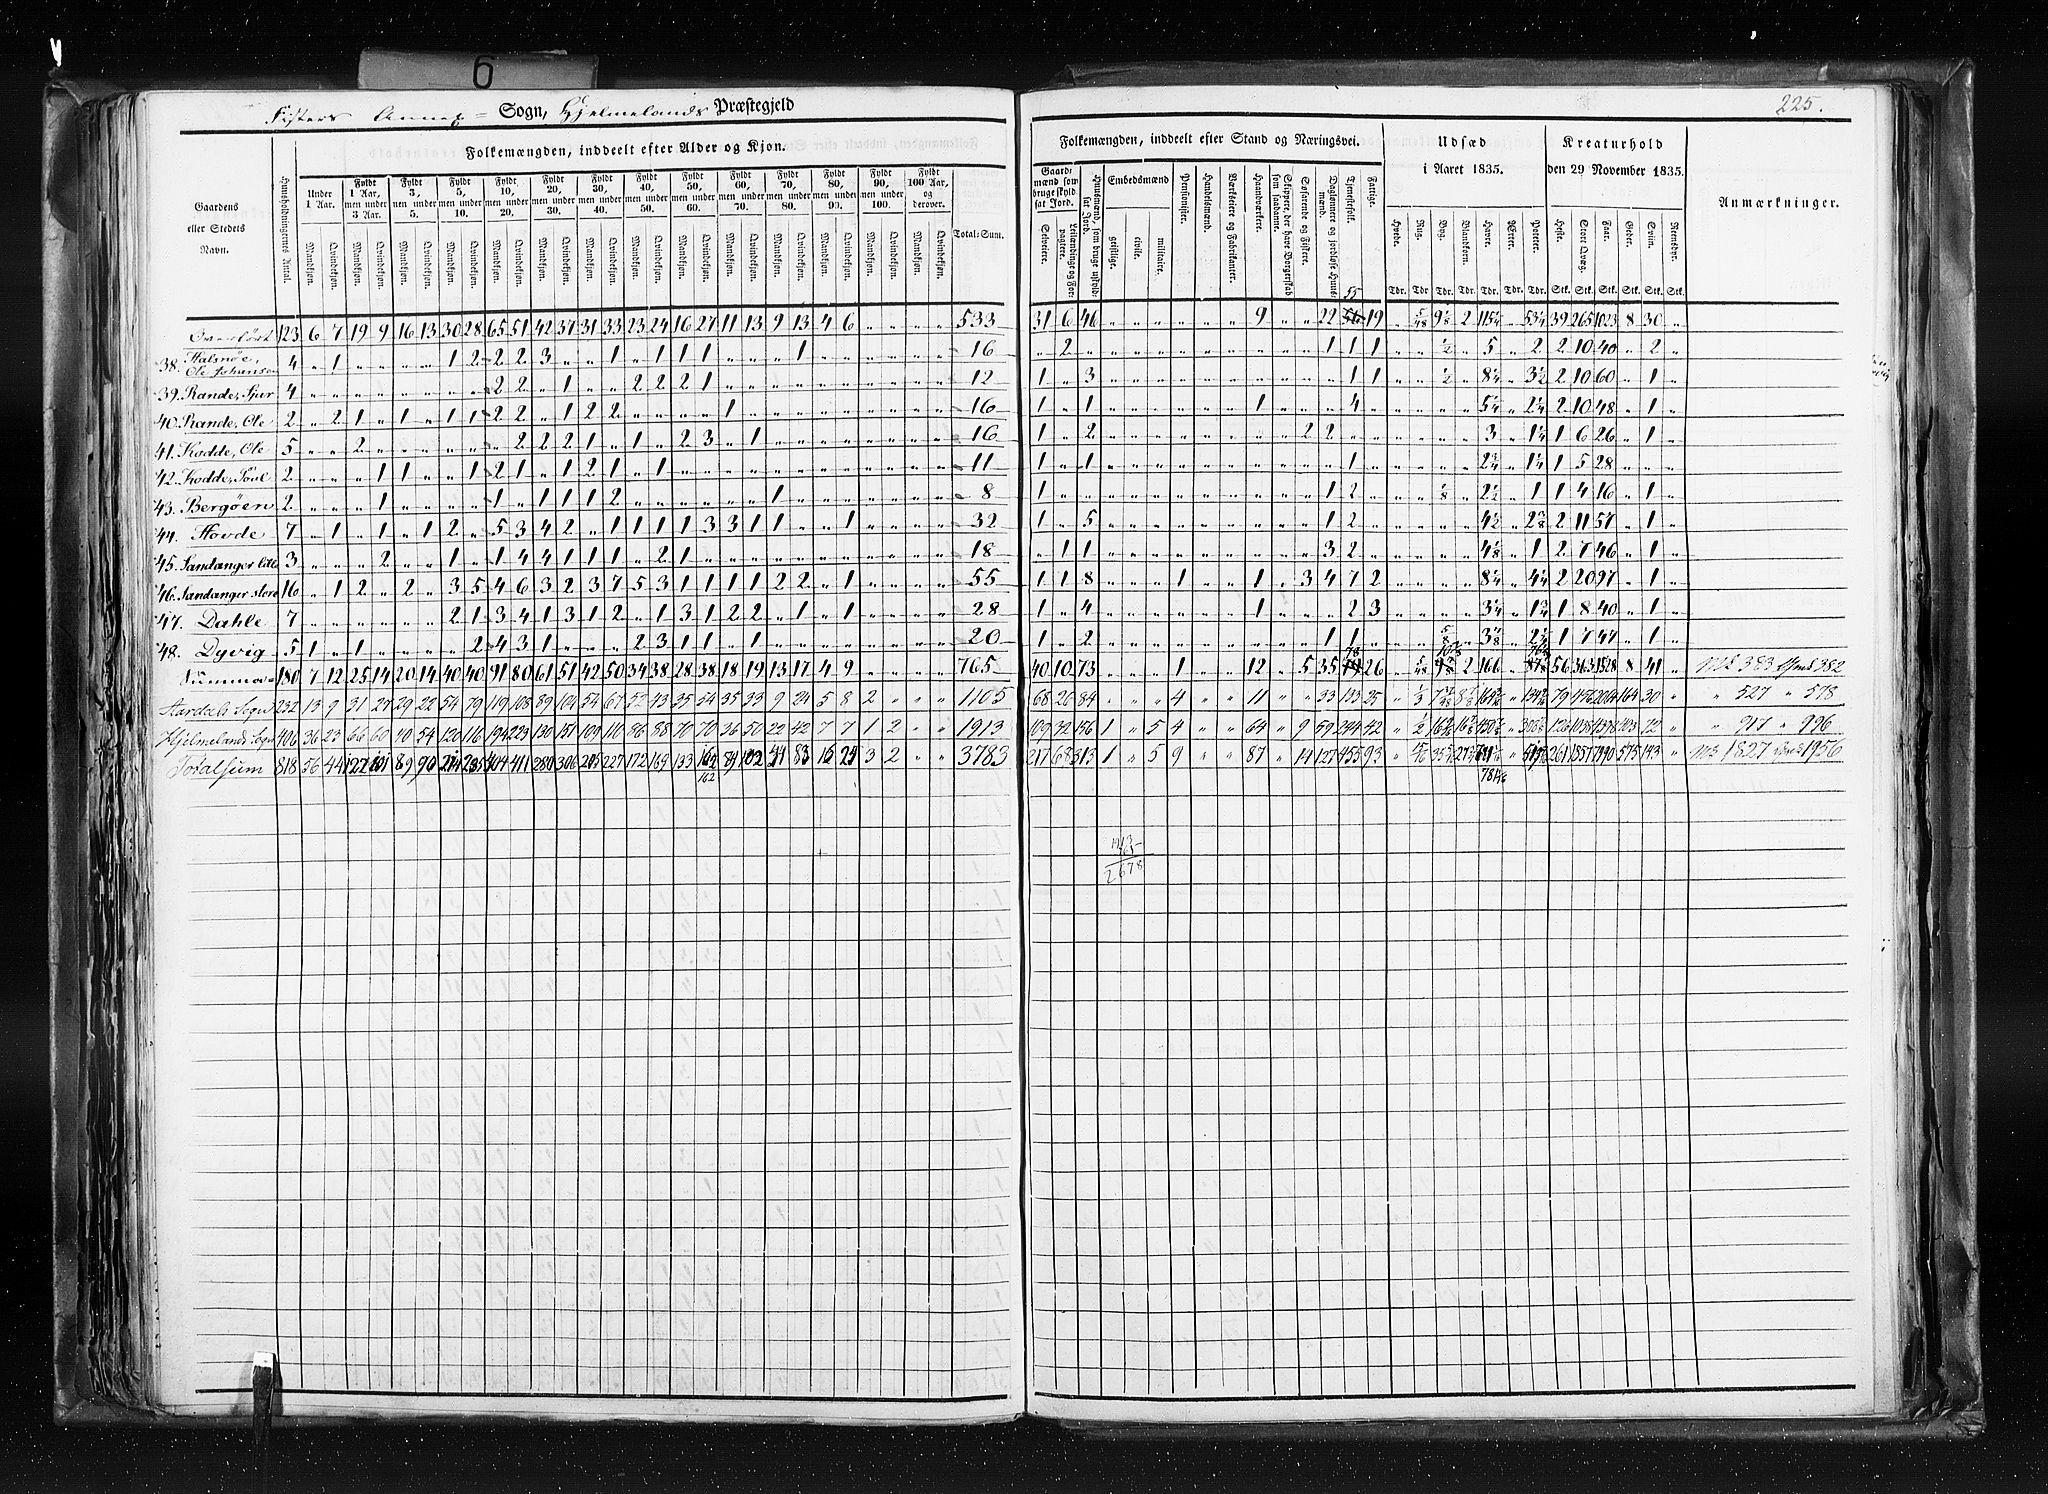 6
225.
Fisters Annex = Sogn, Hjelmelands Præstegjeld
Folkemængden, inddeelt efter Alder og Kjøn.
Folkemængden, inddeelt efter Stand og Næringsvei.
Udsæd i Aaret 1835.
Kreaturhold den 29 November 1835.
Anmærkninger.
Gaardens eller Stedets Navn.
Huusholdningernes Antal.
Under 1 Aar.
Fyldt 1 Aar, men under 3 Aar.
Fyldt 3, men under 5.
Fyldt 5, men under 10.
Fyldt 10, men under 20.
Fyldt 20, men under 30.
Fyldt 30, men under 40.
Fyldt 40, men under 50.
Fyldt 50, men under 60.
Fyldt 60, men under 70.
Fyldt 70, men under 80.
Fyldt 80, men under 90.
Fyldt 90, men under 100.
Fyldt 100 Aar, og derover.
Mandkjøn. Qvindekjøn.
Total-Sum.
Gaardmænd som bruge skyldsat Jord.
Selveiere.
Leilændinge og Forpagtere.
Huusmænd, som bruge uskyldsat Jord.
Embedsmænd
geistlige. civile. militaire.
Pensionister.
Handelsmænd.
Værkseiere og Fabrikanter.
Haandværkere.
Skippere, der have Borgerskab som saadanne.
Søfarende og Fiskere.
Daglønnere og jordløse Huusmænd.
Tjenestefolk.
Fattige.
Hvede. Rug. Byg. Blandkorn. Havre. Ærter. Poteter.
Heste. Stort Qvæg. Faar. Geder. Sviin. Reensdyr.
Tdr. Tdr. Tdr. Tdr. Tdr. Tdr. Tdr. Stk. Stk. Stk. Stk. Stk. Stk.
Overført 123 6 7 19 9 16 13 30 28 65 51 42 37 31 33 23 24 16 27 11 13 9 13 4 6 " " " " 533 31 6 46 " " " " " " 9 " " 22 55 19 " 5/48 9 1/8 2 115 1/4 " 53 1/4 39 265 1023 8 30 "
38. Halsnøe, Ole Johansen 4 " 1 " " " " 1 2 2 2 3 " " 1 " 1 1 1 " " " 1 " " " " " " 16 " 2 " " " " " " " " " " 1 1 1 " " 1/2 " 5 " 2 2 10 40 " 2 "
39. Rande, Sjur 4 " " " " " " " " 2 2 " 1 " " 2 2 2 1 " " " " " " " " " " 12 1 " 3 " " " " " " " " " " 1 1 " " 1/2 " 8 1/4 " 3 1/2 2 10 60 " 1 "
40. Rande, Ole 2 " 2 1 " 1 " 1 1 2 2 " 1 2 2 " " " " 1 " " " " " " " " " 16 1 " 1 " " " " " " 1 " " " 4 " " " " " 5 1/4 " 2 1/4 2 10 48 " 1 "
41. Kodde, Ole 5 " " 2 " " " " " " 2 2 2 1 " 1 " 2 3 " 1 " " " " " " " " 16 1 " 2 " " " " " " " " 2 2 " " " " " " 3 " 1 1/4 1 6 26 " 1 "
42. Kodde, Poul 2 " " " 1 1 " " 1 2 1 " 1 2 1 " 1 " " " " " " " " " " " " 11 1 " 1 " " " " " " " " " " 1 " " " " " 2 3/4 " 1 1/4 1 5 28 " " "
43. Bergøen 2 " " " 1 " " " " 1 " 1 1 1 2 " " " " " " 1 " " " " " " " 8 1 " " " " " " " " " " " 1 2 " " " 1/8 " 2 1/2 " 1 1 4 16 " 1 "
44. Hovde 7 " 1 " 1 " 1 2 " 5 3 4 2 " 1 1 1 1 3 3 1 1 " " 1 " " " " 32 1 " 5 " " " " " " " " " 1 2 " " " " " 4 1/2 " 2 3/8 2 11 57 " 1 "
45. Sandanger litle 3 " " " 2 " " 1 " 1 4 4 1 1 1 " 2 1 " " " " " " " " " " " 18 " 1 1 " " " " " " " " " 3 2 " " " " " 4 1/8 " 1 2 7 46 " 1 "
46. Sandanger store 16 " 1 2 " 2 " 3 5 4 6 3 2 3 7 5 3 1 1 1 1 2 2 " 1 " " " " 55 1 1 8 " " " 1 " " 1 " 3 4 7 2 " " " " 8 1/4 " 4 1/4 2 20 97 " 1 "
47. Dahle 7 " " " " " " 2 1 3 4 1 3 1 2 " 1 3 1 2 2 " 1 " 1 " " " " 28 1 " 4 " " " " " " 1 " " " 2 3 " " " " 3 1/4 " 1 3/4 1 8 40 " 1 "
48. Dyvig 5 1 " 1 " " " " 2 4 3 1 " " " 2 3 1 1 " 1 " " " " " " " " 20 1 " 2 " " " " " " " " " 1 1 " " " 5/8 " 3 1/8 " 2 1/4 1 7 47 " 1 "
Summa 180 7 12 25 14 20 14 40 40 91 80 61 51 42 50 34 38 28 38 18 19 13 17 4 9 " " " " 765 40 10 73 " " " 1 " " 12 " 5 35 78 26 " 5/48 10 7/8 2 166 " 56 363 1528 8 41 " Md 383 Qvd 382
Aardals Sogn 232 13 9 31 27 29 22 54 79 119 108 89 104 54 67 52 43 35 54 35 33 9 24 5 8 2 " " " 1105 68 26 84 " " " 4 " " 11 " " 33 133 25 " 1/3 79 456 2064 164 30 " " 527 " 578
Hjelmelands Sogn 406 36 23 66 60 40 54 120 116 194 223 130 151 109 110 86 88 70 70 36 50 22 42 7 7 1 2 " " 1913 109 32 156 1 " 5 4 " " 64 " 9 59 244 42 " 1/2 126 1038 4398 403 72 " " 917 " 996
Totalsum 818 56 44 122 101 89 90 214 235 404 411 280 306 205 227 172 169 133 162 89 102 44 83 16 24 3 2 " " 3783 217 68 313 1 " 5 9 " " 87 " 14 127 455 93 " 261 1857 7990 575 143 " Md 1827 Qvd 1956
162
1913
765
2678